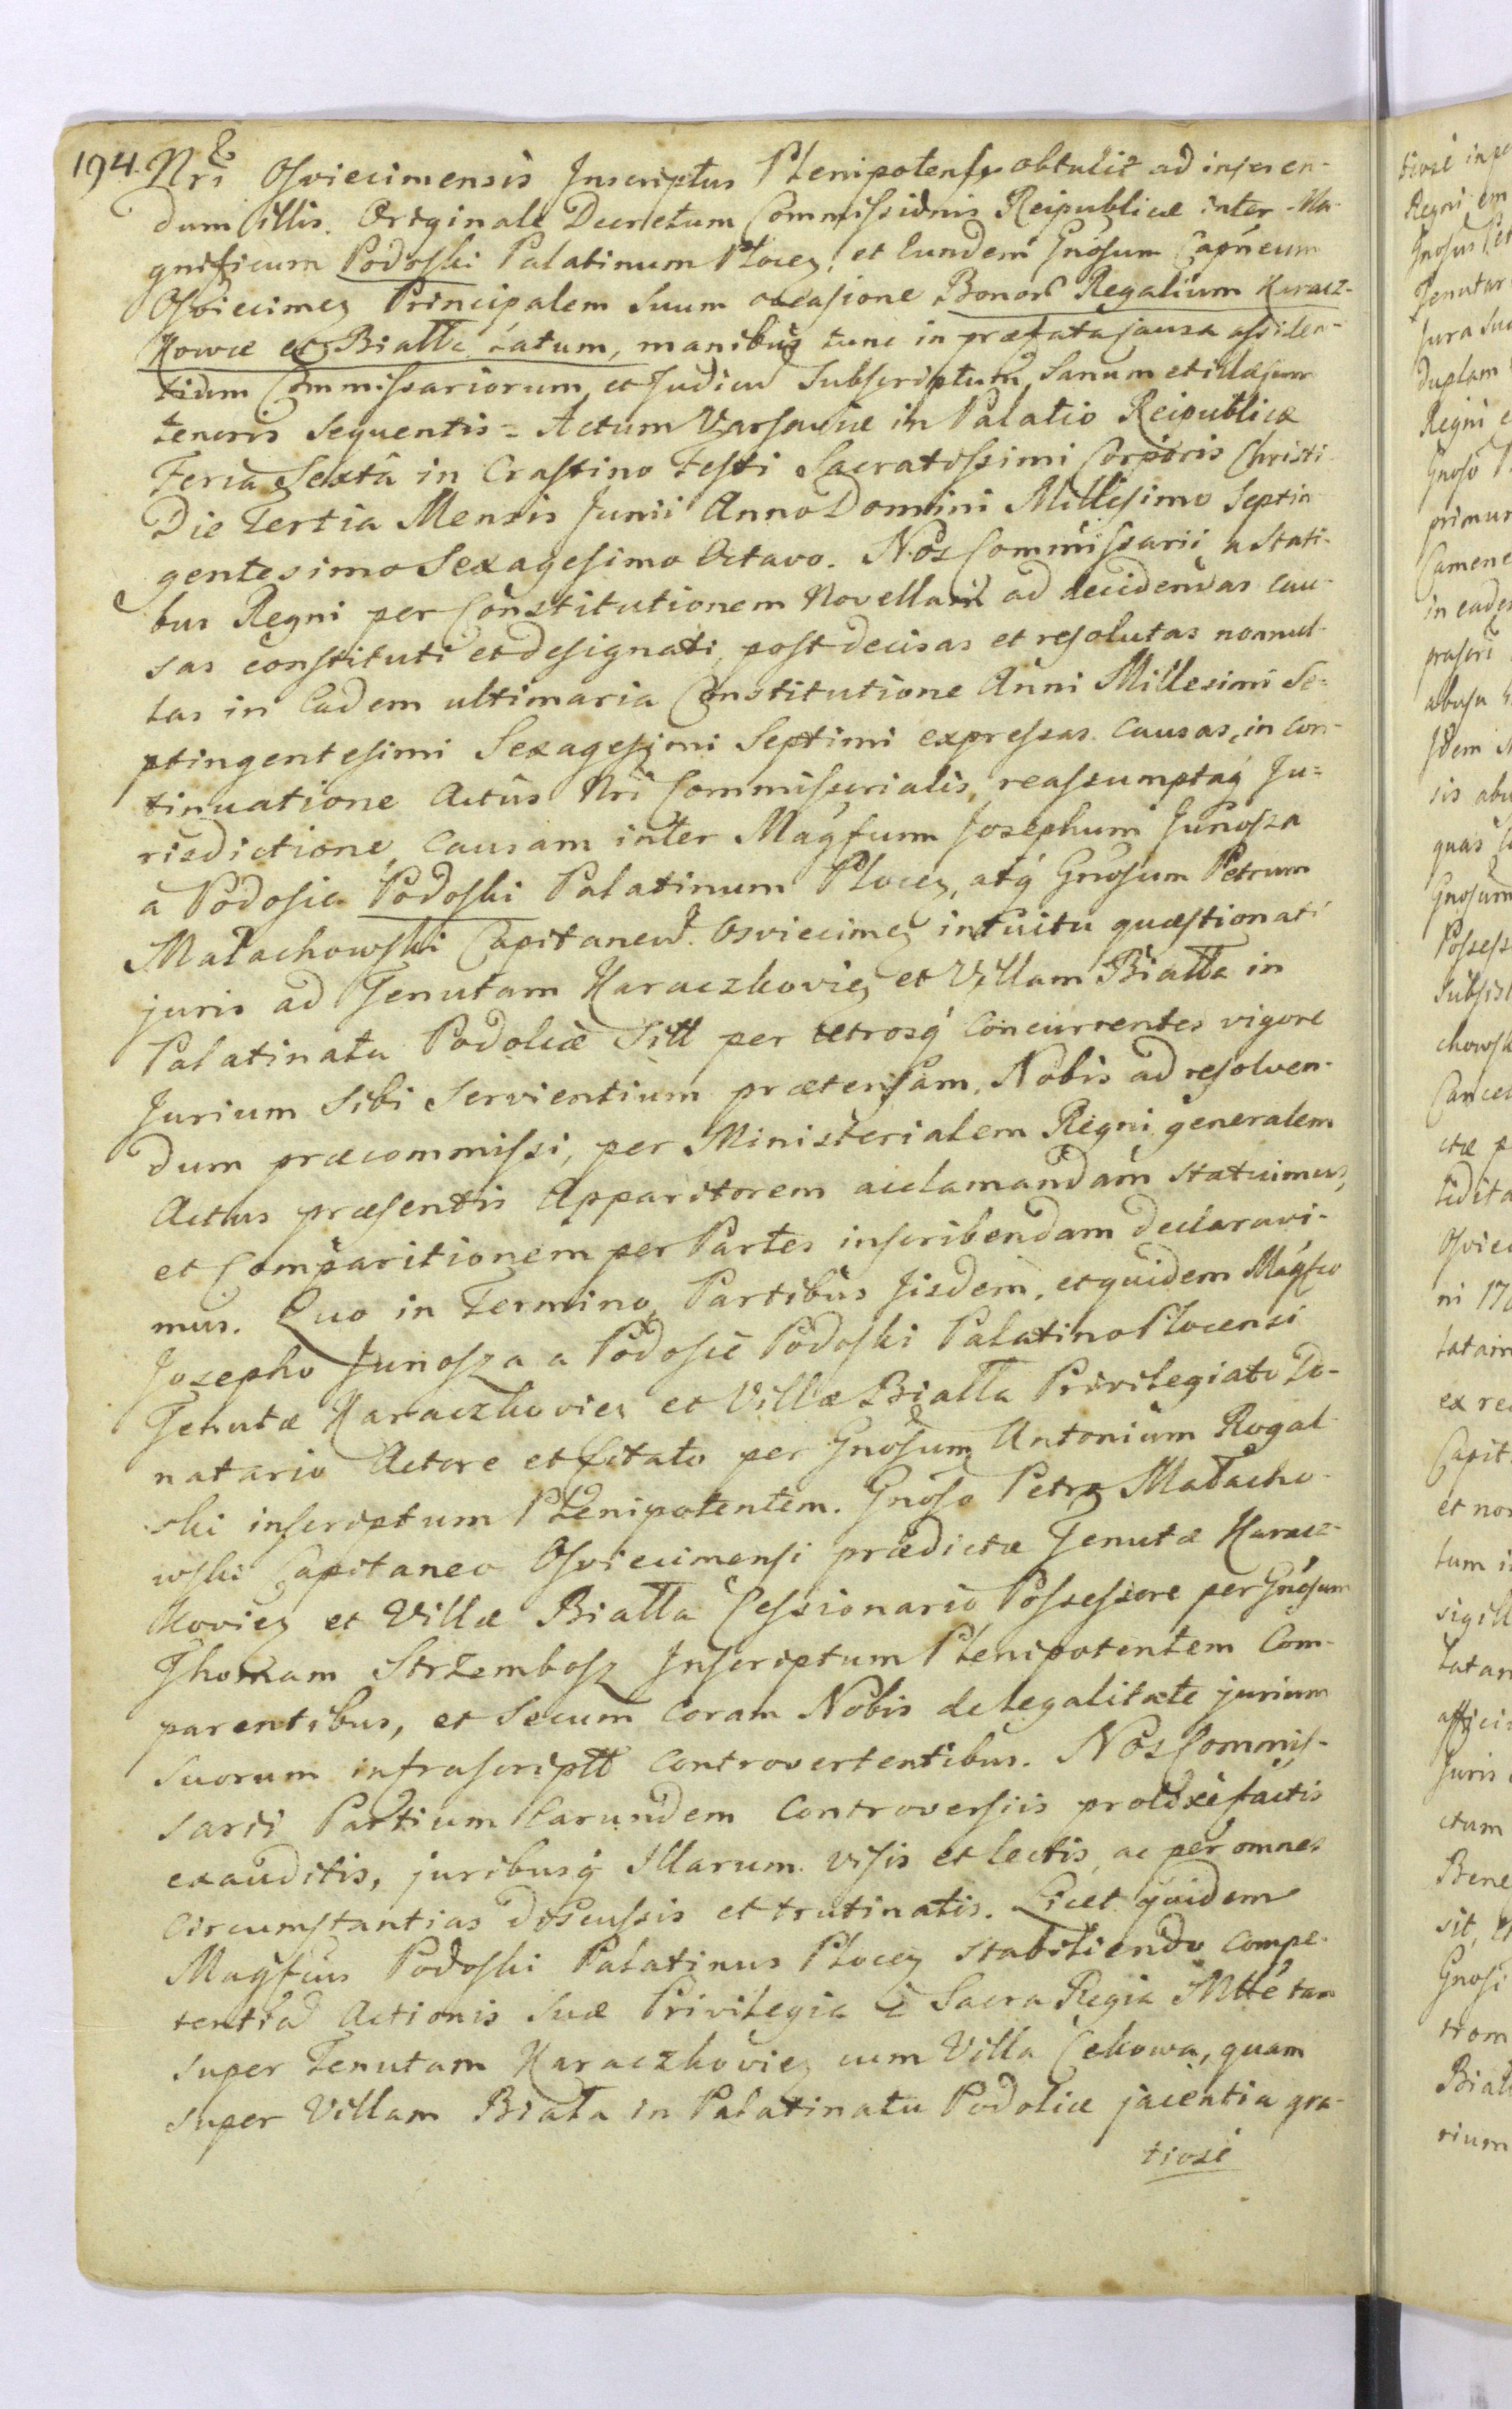 194. Nri Osviecimensis Inscriptus Plenipotens obtulit ad inseren-
dum illis. Originale Decretum Commissionis Reipublicæ inter Ma-
gnificum Podoski Palatinum Plocez, et Eundem Gnosum Capneum
Osviecimez Principalem Suum occasione Bonor Regalium Karacz-
kowce et Biatta Latum, manibus tunc in præfata Causa assiden-
tium Commissariorum, et Judicu Subscriptum, Sanum et illæsum
tenoris sequentis = Actum Varsaviæ in Palatio Reipublicæ
Feria Sexta in Crastino Festi Sacratissimi Corporis Christi
Die Tertia Mensis Junii Anno Domini Millesimo Septin
gentesimo Sexagesimo Octavo. Nos Commissarii a Stati-
bus Regni per Constitutionem Novellam ad decidendas cau-
sas constituti et designati, post decisas et resolutas nonnul-
las in Eadem ultimaria Constitutione Anni Millesimi Se=
ptingentesimi Sexagesimi Septimi expressas Causas, in Con-
tinuatione Actus Nri Commissorialis, reassumptaq Ju=
risdictione, Causam inter Magfum Josephum Junosza
a Podosie Podoski Palatinum Plocez, atq Gnosum Petrum
Matachowski Capitaneu Osviecimez intuitu quæstionati
juris ad Tenutam Karaczkoviez et Villam Biatta in
Palatinatu Podoliæ Sitt per utrosq Concurrentes vigore
Jurium Sibi Servientium prætensam, Nobis ad resolven-
dum præcommissi, per Ministerialem Regni generalem
Actus præsentis Apparitorem acclamandam statuimus,
et Comparitionem per Partes inscribendam declaravi-
mus. Quo in Termino, Partibus Jisdem, et quidem Magfco
Josepho Junosza a Podosie Podoski Palatino Plocensi
Tenutæ Karaczkoviez et Villæ Biatta Privilegiato Do-
natario Actore et Citato per Gnosum Antonium Rogal-
ski inscriptum Plenipotentem. Gnoso Petro Matacho-
wski Capitaneo Osviecimensi prædictæ Tenutæ Karacz-
koviez et Villæ Biatta Cessionario Possessore per Gnosum
Thomam Strzembosz Inscriptum Plenipotentem Com-
parentibus, et Secum Coram Nobis de legalitate jurium
Suorum infrascriptt Controvertentibus. Nos Commis-
sarii Partium Earundem Controversiis prolixe factis
exauditis, juribusq Illarum visis et lectis, ac per omnes
Circumstantias discussis et trutinatis. Licet quidem
Magfcus Podoski Palatinus Plocez stabiliendo Compe-
tentia Actionis Suæ Privilegia a Sacra Regia Mtte tam
super Tenutam Karaczkoviez cum Villa Cekowa, quam
super Villam Biata in Palatinatu Podoliæ jacentia gra-
tiose